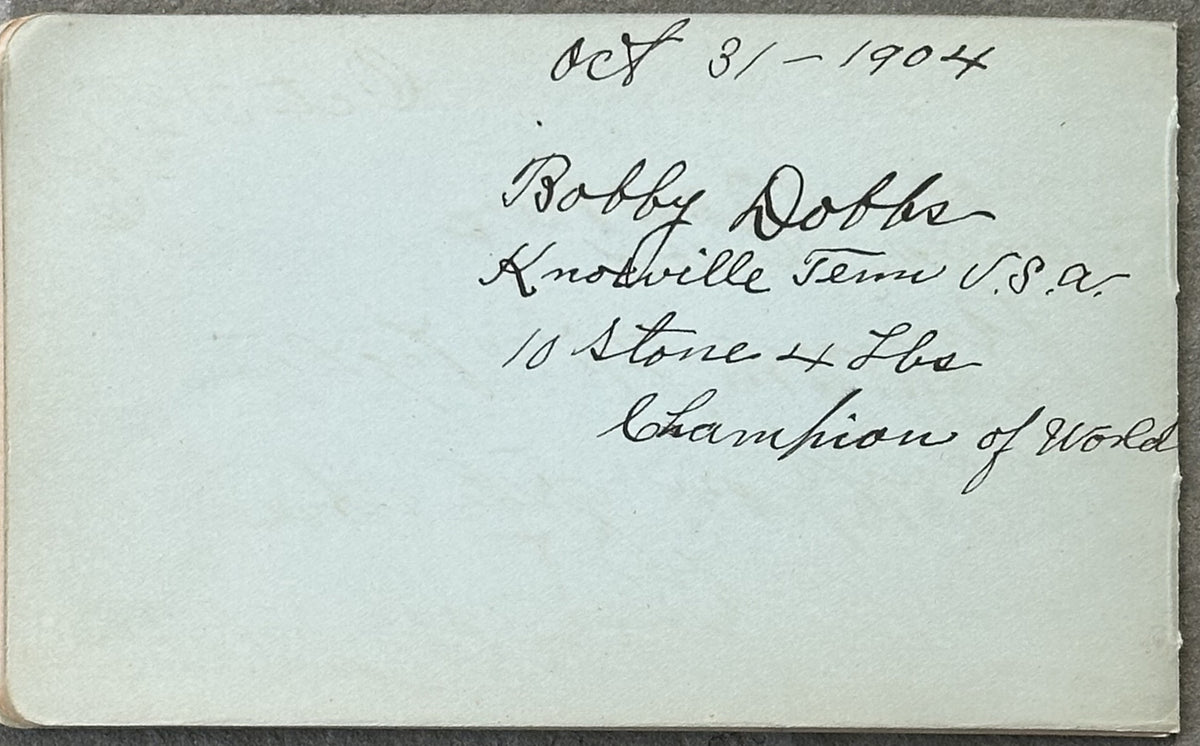 Oct 31 - 1904
Bobby Dobbs
Knoxville Tenn U.S.A.
10 Stone 4 Lbs
Champion of World